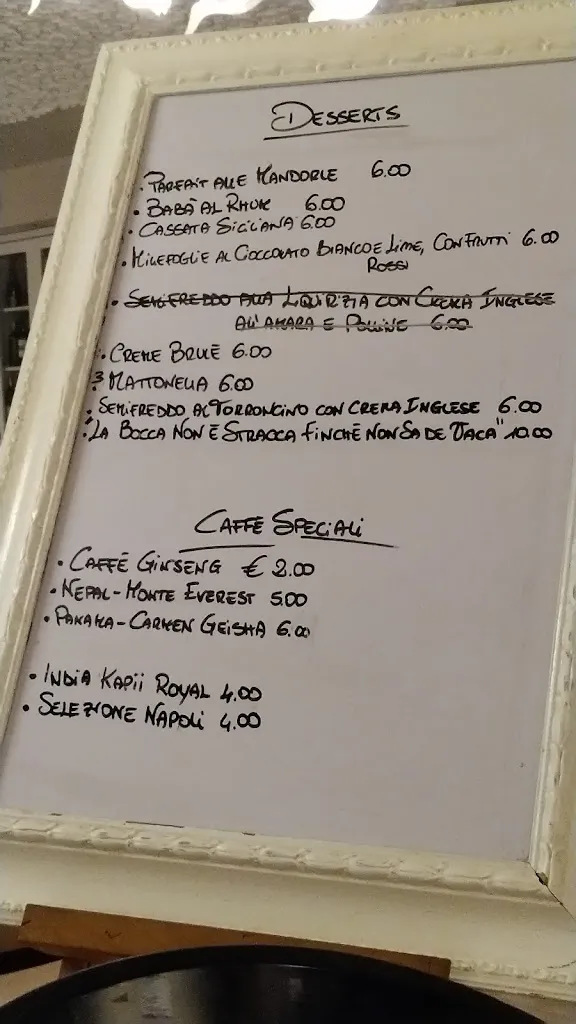 DESSERTS
• PARFAIT ALLE MANDORLE 6.00
• BABÀ AL RHUM 6.00
• CASSATA SICILIANA 6.00
• MILLEFOGLIE AL CIOCCOLATO BIANCO E LIME, CON FRUTTI 6.00
ROSSI
• SEMIFREDDO ALLA LIQUIRIZIA CON CREMA INGLESE
ALL'AMARA E POLLINE 6.00
• CREME BRULE 6.00
3 MATTONELLA 6.00
• SEMIFREDDO AL TORRONCINO CON CREMA INGLESE 6.00
• "LA BOCCA NON È STRACCA FINCHÈ NON SA DE VACA" 10.00
CAFFÈ SPECIALI
• CAFFÈ GINSENG € 2.00
• NEPAL-MONTE EVEREST 5.00
• PANAMA-CARMEN GEISHA 6.00
• INDIA KAPII ROYAL 4.00
• SELEZIONE NAPOLI 4.00